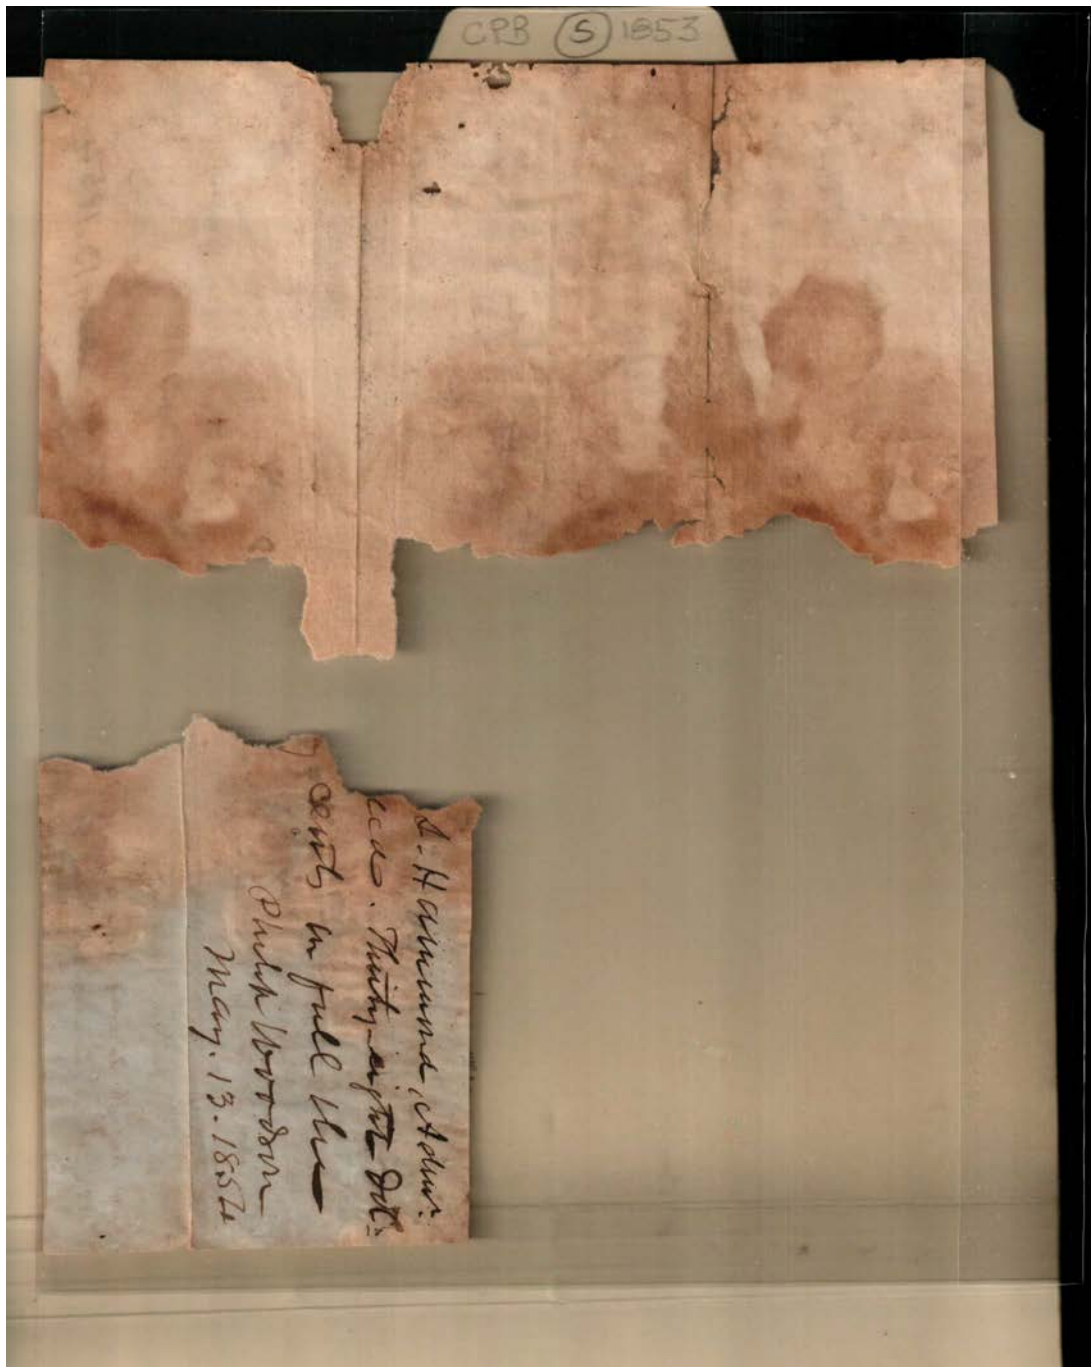 CPB S 1853
S. Hammond, Adm.
ecd. Thirty-eight Dol-
cents in full the
Philip Woodson
May. 13. 1854